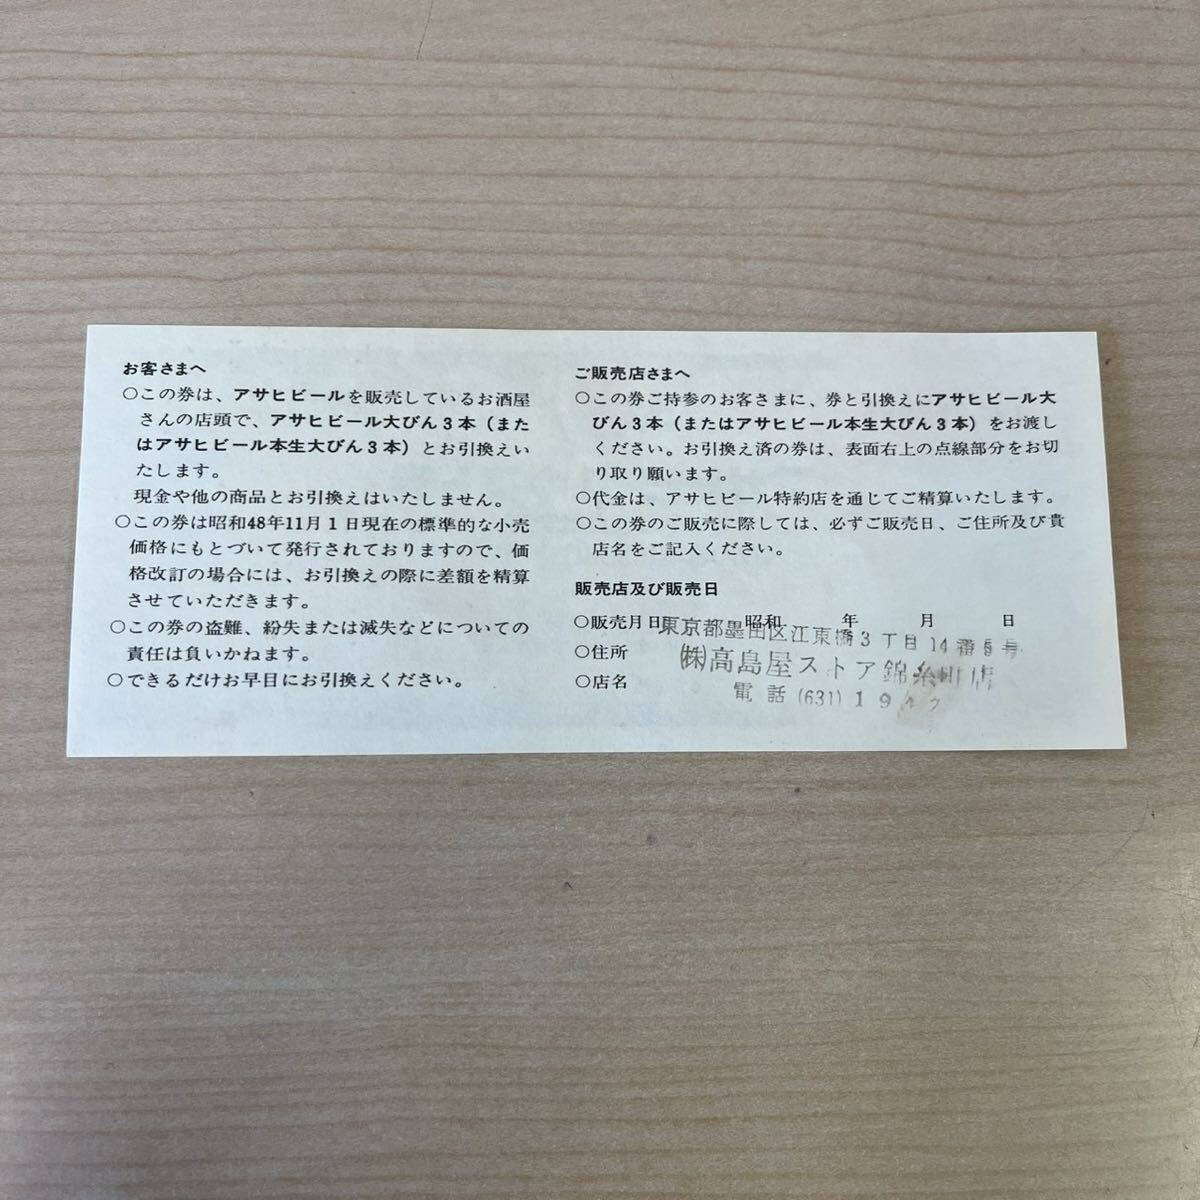 お客さまへ
○この券は、アサヒビールを販売しているお酒屋
さんの店頭で、アサヒビール大びん3本（また
はアサヒビール本生大びん3本）とお引換えい
たします。
現金や他の商品とお引換えはいたしません。
○この券は昭和48年11月1日現在の標準的な小売
価格にもとづいて発行されておりますので、価
格改訂の場合には、お引換えの際に差額を精算
させていただきます。
○この券の盗難、紛失または滅失などについての
責任は負いかねます。
○できるだけお早目にお引換えください。
ご販売店さまへ
○この券ご持参のお客さまに、券と引換えにアサヒビール大
びん3本（またはアサヒビール本生大びん3本）をお渡し
ください。お引換え済の券は、表面右上の点線部分をお切
り取り願います。
○代金は、アサヒビール特約店を通じてご精算いたします。
○この券のご販売に際しては、必ずご販売日、ご住所及び貴
店名をご記入ください。
販売店及び販売日
○販売月日 昭和 年 月 日
○住所
○店名
東京都墨田区江東橋3丁目14番5号
㈱高島屋ストア錦糸町店
電話(631)19